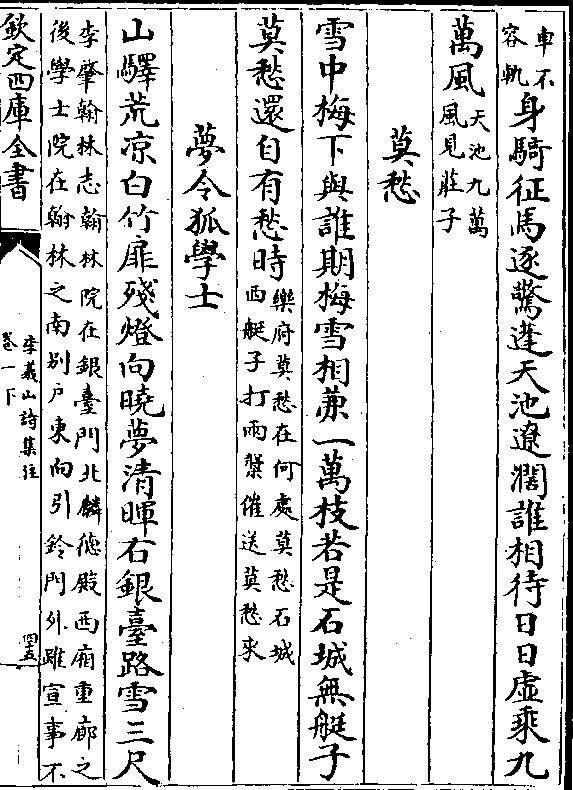 車不
容軌
身騎征馬逐驚蓬天池遼濶誰相待日日虚乘九
萬風
天池九萬
風見莊子
莫愁
雪中梅下與誰期梅雪相兼一萬枝若是石城無艇子
莫愁還自有愁時
樂府莫愁在何處莫愁石城
西艇子打兩槳催送莫愁來
夢令狐學士
山驛荒凉白竹扉殘燈向曉夢清暉右銀臺路雪三尺
李肇翰林志翰林院在銀臺門北麟德殿西廂重廊之
後學士院在翰林之南别户東向引鈴門外雖宣事不
欽定四庫全書
李義山詩集注
卷一下
四五